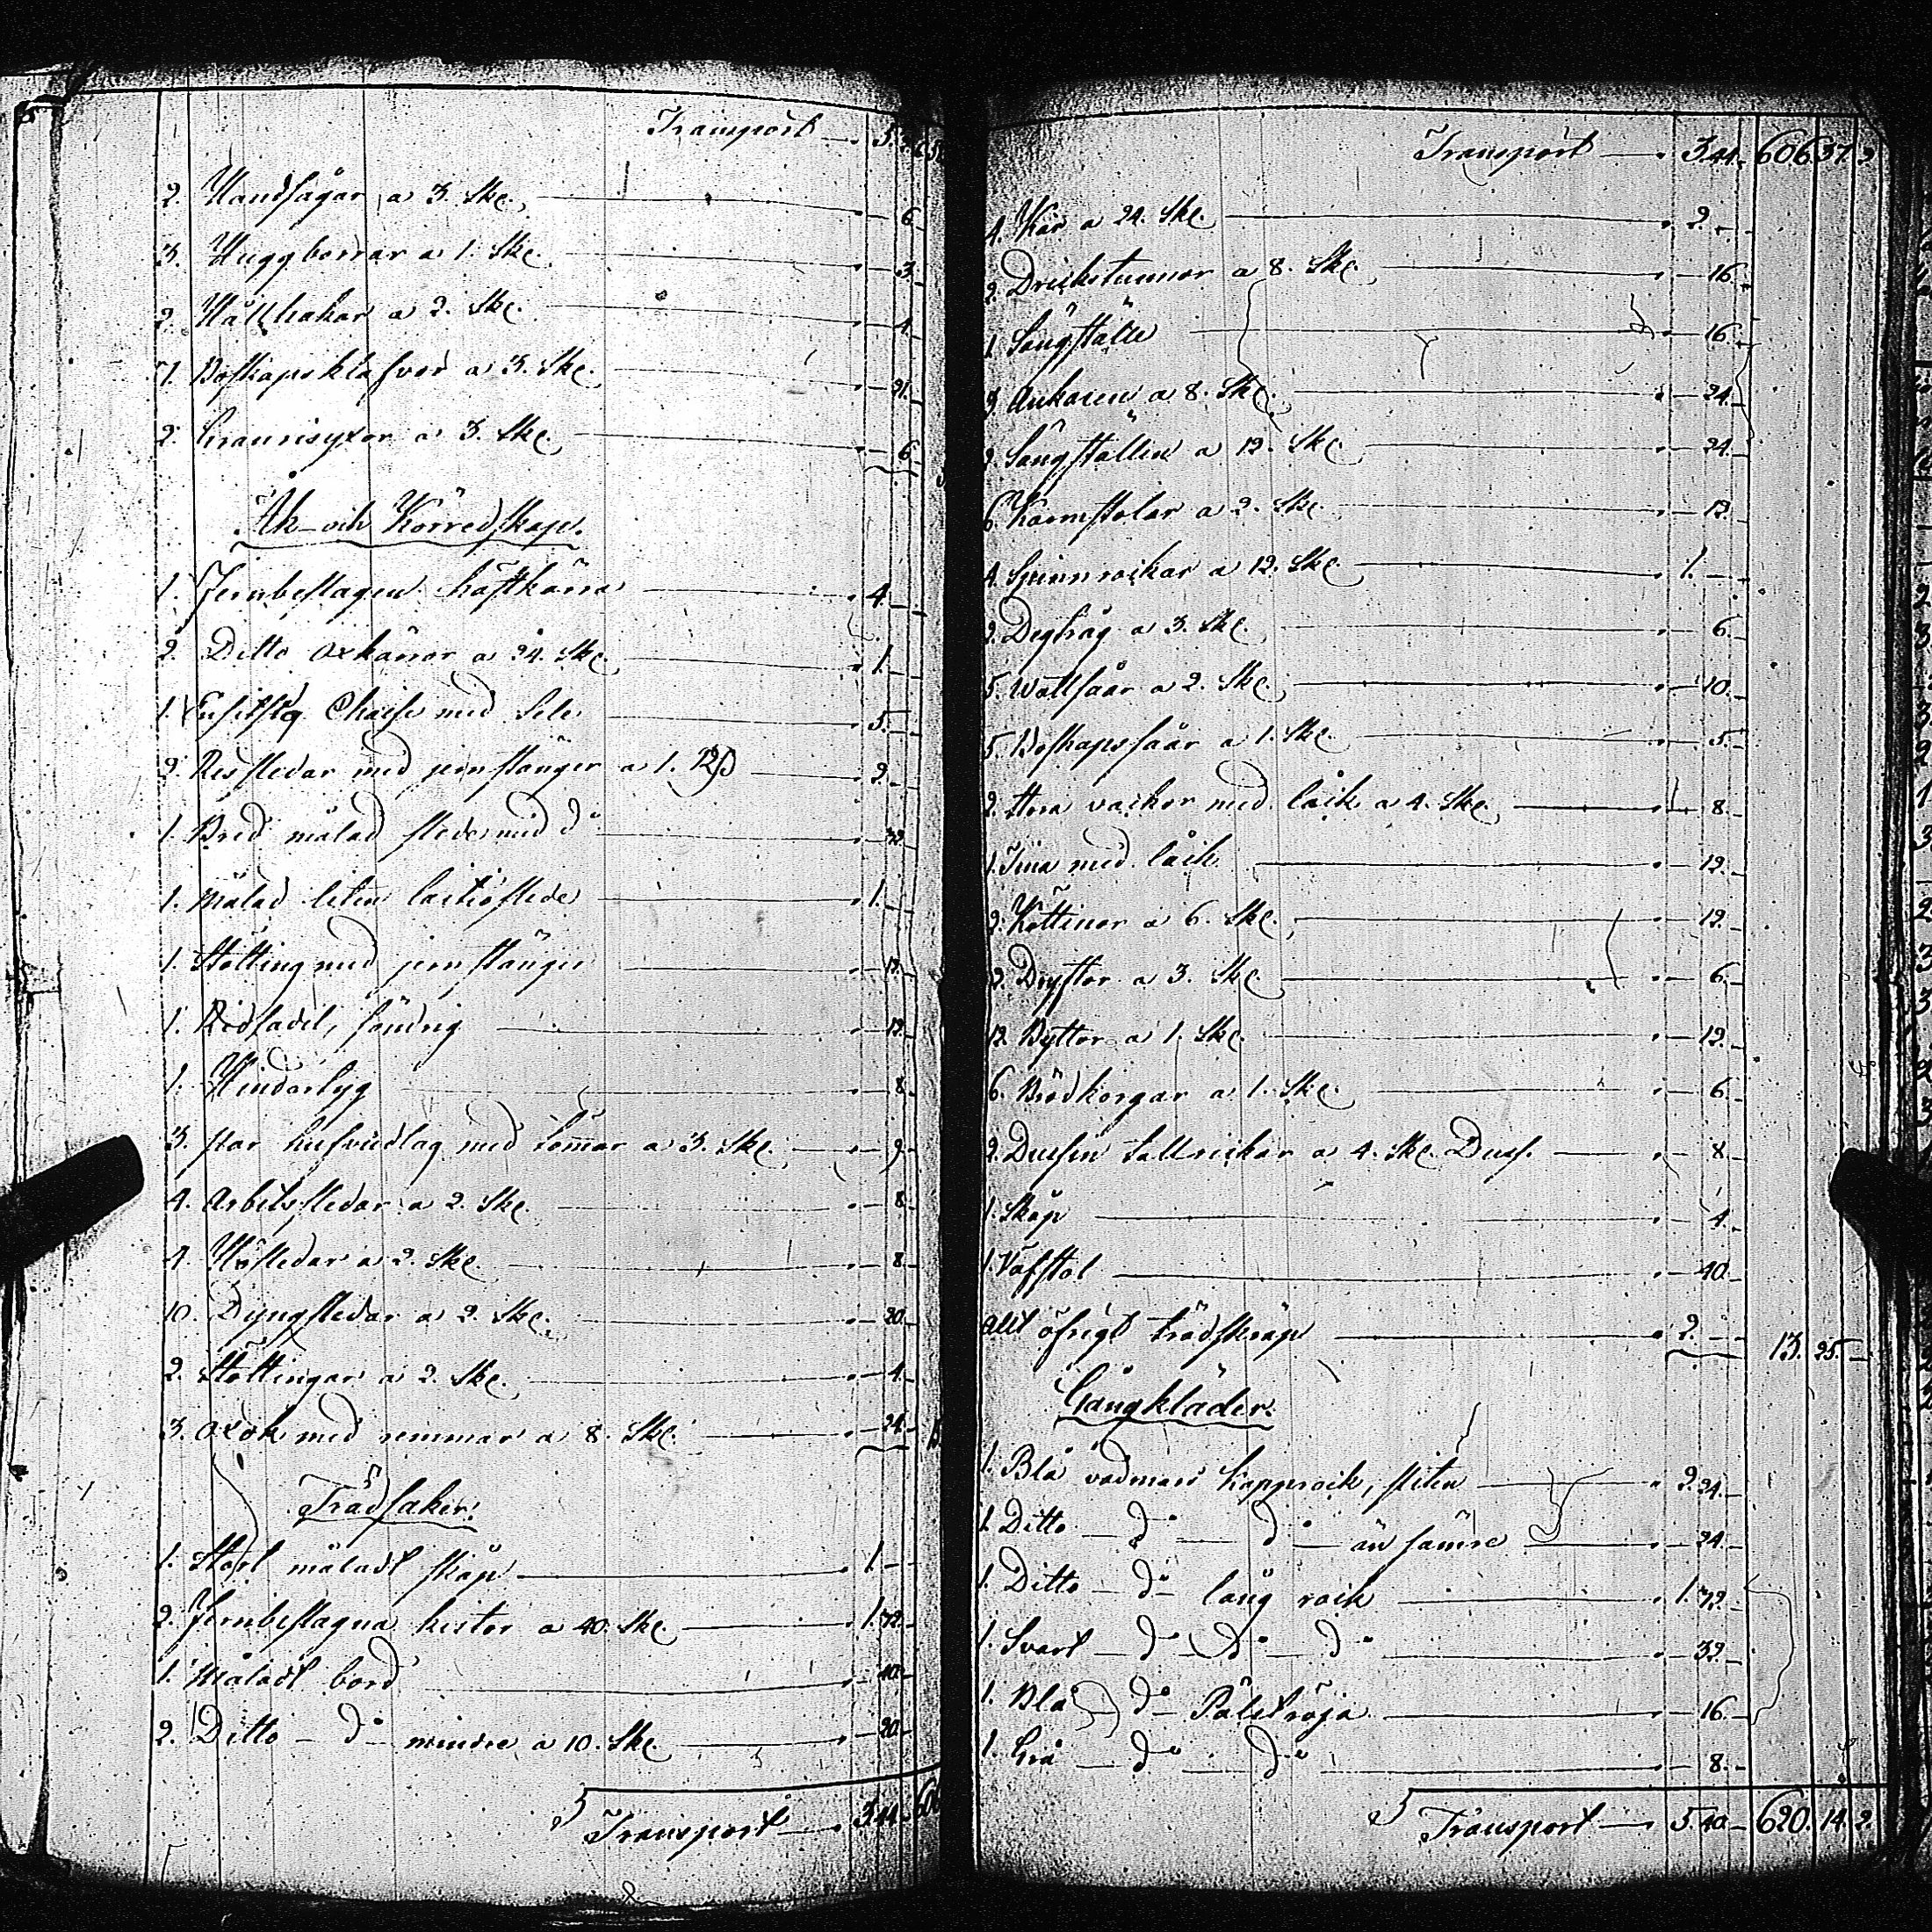 Transport — 5.
2. Handsågar a 3. Skl. — 6
3. Huggborrar a 1. Skl. — 3.
2. Hållhakar a 2. Skl. — 4.
7. Boskapsklafvar a 3. Skl. — 21.
2. a 3. Skl. — 6.
Åk- och Körredskap.
1. Jernbeslagen häftkärra — 4.
2. Ditto oxkärror a 24. Skl. — 1.
1. Ensitsig Chaise med Sele — 5.
2. Ressledar med jernstänger a 1. — 2.
1. Bred målad slede med do — 32.
1. Målad liten — 1.
1. Stötting med jernstänger — 12.
1. Ridsadel, söndrig — 12.
1. — 8.
3. par hufvudlag med tömar a 3. Skl. — 9.
4. Arbetssledar a 2. Skl. — 8.
4. Hösledar a 2. Skl. — 8.
10. Dyngsledar a 2. Skl. — 20.
2. Stöttingar a 2. Skl. — 4.
3. oxok med remmar a 8. Skl. — 24.
Trädsaker.
1. Stort måladt skåp — 1.
2. Jernbeslagna kistor a 40. Skl. — 1.32.
1. Måladt bord — 40.
2. Ditto — do — mindre a 10. Skl. — 20.
Transport — 3.44.
Transport — 3.44. 606.37.
4. Kar a 24. Skl. — 2.
2. Drickstunnor a 8. Skl. — 16.
1. Sängställe — 16.
3. Ankaren a 8. Skl. — 24.
2. Sängställen a 12. Skl. — 24.
6. Karmstolar a 2. Skl. — 12.
4. Spinnrockar a 12. Skl. — 1.
2. Degtråg a 3. Skl. — 6.
5. a 2. Skl. — 10.
5. Boskapssåar a 1. Skl. — 5.
2. Stora med låck a 4. Skl. — 8.
1. Tina med låck — 12.
2. Köttinor a 6. Skl. — 12.
2. a 3. Skl. — 6.
12. Byttor a 1. Skl. — 12.
6. Brödkorgar a 1. Skl. — 6.
2. Dussin tallrickar a 4. Skl. Duss. — 8.
1. Skåp — 4.
1. Väfstol — 40.
Allt öfrigt trädskräp — 2. 13. 25.
Gångkläder.
1. Blå vadmars kapprock, sliten — 2.24.
1. Ditto — do — do — än sämre — 24.
1. Ditto — do — lång rock — 1.32.
1. Svart — do — do — do — 32.
1. Blå — do — Pälströja — 16.
1. Grå — do — do — 8.
Transport — 5.40. 620. 14. 2.